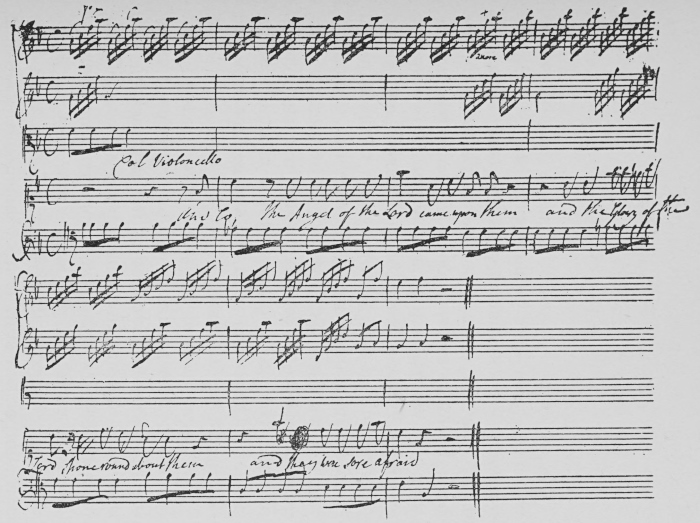 Col Violoncello
And Lo the Angel of the Lord came upon them and the Glory of the
Lord shone round about them and they were sore afraid